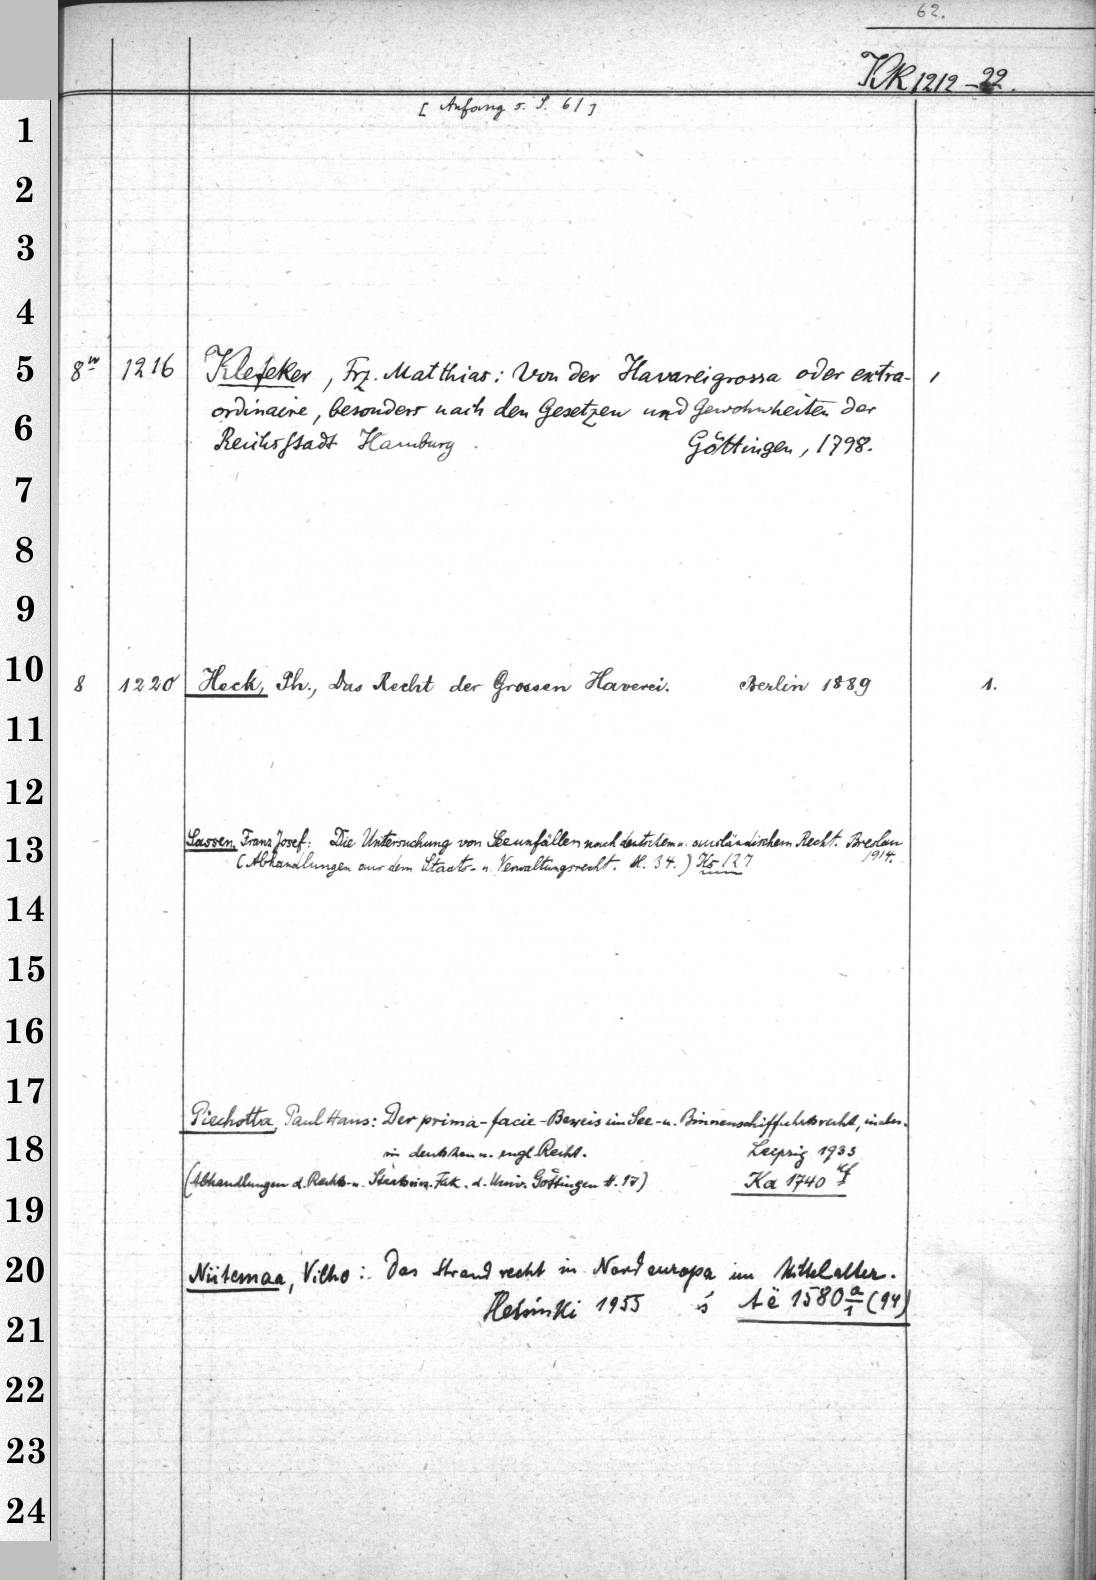 62.
KK 1212-22.
[Anfang s. S. 61]
8° 1216 Klefeker, Frz. Matthias: Von der Havareigrossa oder extra- 1
ordinaire, besonders nach den Gesetzen und Gewohnheiten der
Reichsstadt Hamburg. Göttingen, 1798.
8 1220 Heck, Ph., Das Recht der Grossen Haverei. Berlin 1889 1.
Sassen, Franz Josef: Die Untersuchung von Seeunfällen nach deutschem u. ausländischem Recht. Breslau
1914.
(Abhandlungen aus dem Staats- u. Verwaltungsrecht. H. 34.) 127
Piechotta, Paul Hans: Der prima-facie-Beweis im See- u. Binnenschiffahrtsrecht, insbes.
im deutschen u. engl. Recht. Leipzig 1933
(Abhandlungen d. Rechts- u. Staatswiss. Fak. d. Univ. Göttingen H. 17) Ka 1740
Niitemaa, Vilho: Das Strandrecht in Nordeuropa im Mittelalter.
Helsinki 1955 s. Aë 1580 a/1 (94)
1
2
3
4
5
6
7
8
9
10
11
12
13
14
15
16
17
18
19
20
21
22
23
24